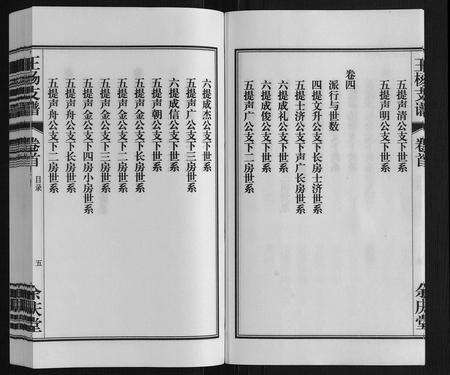 王杨支谱 卷首 余庆堂
五提声清公支下世系
五提声明公支下世系
卷四
派行与世数
四提文升公支下长房士济世系
五提士济公支下声广长房世系
六提成礼公支下世系
六提成俊公支下世系
五提声广公支下二房世系
六提成杰公支下世系
五提声广公支下三房世系
六提成信公支下世系
五提声朝公支下世系
五提声金公支下长房世系
五提声金公支下二房世系
五提声金公支下三房世系
五提声金公支下四房小房世系
五提声舟公支下长房世系
五提声舟公支下二房世系
王杨支谱 卷首 目录 五 余庆堂